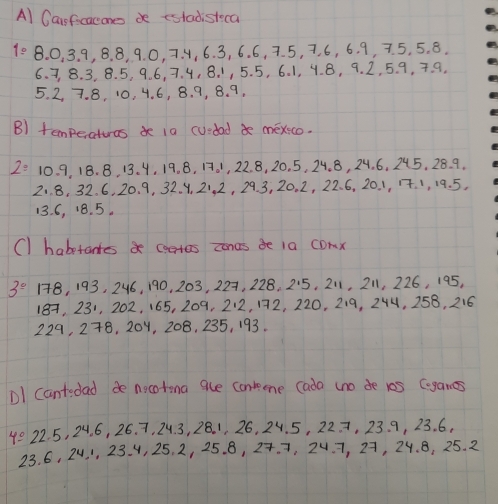 A) Calificaciones de estadistica
1= 8.0, 3.9, 8.8, 9.0, 7.4, 6.3, 6.6, 7.5, 7.6, 6.9, 7.5, 5.8.
6.7, 8.3, 8.5, 9.6, 7.4, 8.1, 5.5, 6.1, 4.8, 9.2, 5.9, 7.9.
5.2, 7.8, 10, 4.6, 8.9, 8.9.
B) temperaturas de la cuidad de méxico.
2= 10.9, 18.8, 13.4, 19.8, 17.1, 22.8, 20.5, 24.8, 24.6, 24.5, 28.9.
21.8, 32.6, 20.9, 32.4, 21.2, 29.3, 20.2, 22.6, 20.1, 17.1, 19.5.
13.6, 18.5.
C) habitantes de ciertas zonas de la CDMX
3= 178, 193, 246, 190, 203, 227, 228, 215, 211, 211, 226, 195,
187, 231, 202, 165, 209, 212, 172, 220, 219, 244, 258, 216
229, 278, 204, 208, 235, 193.
D) Cantidad de nicotina que contiene cada uno de los
4= 22.5, 24.6, 26.7, 24.3, 28.1, 26, 24.5, 22.7, 23.9, 23.6,
23.6, 24.1, 23.4, 25.2, 25.8, 27.7, 24.7, 27, 24.8, 25.2